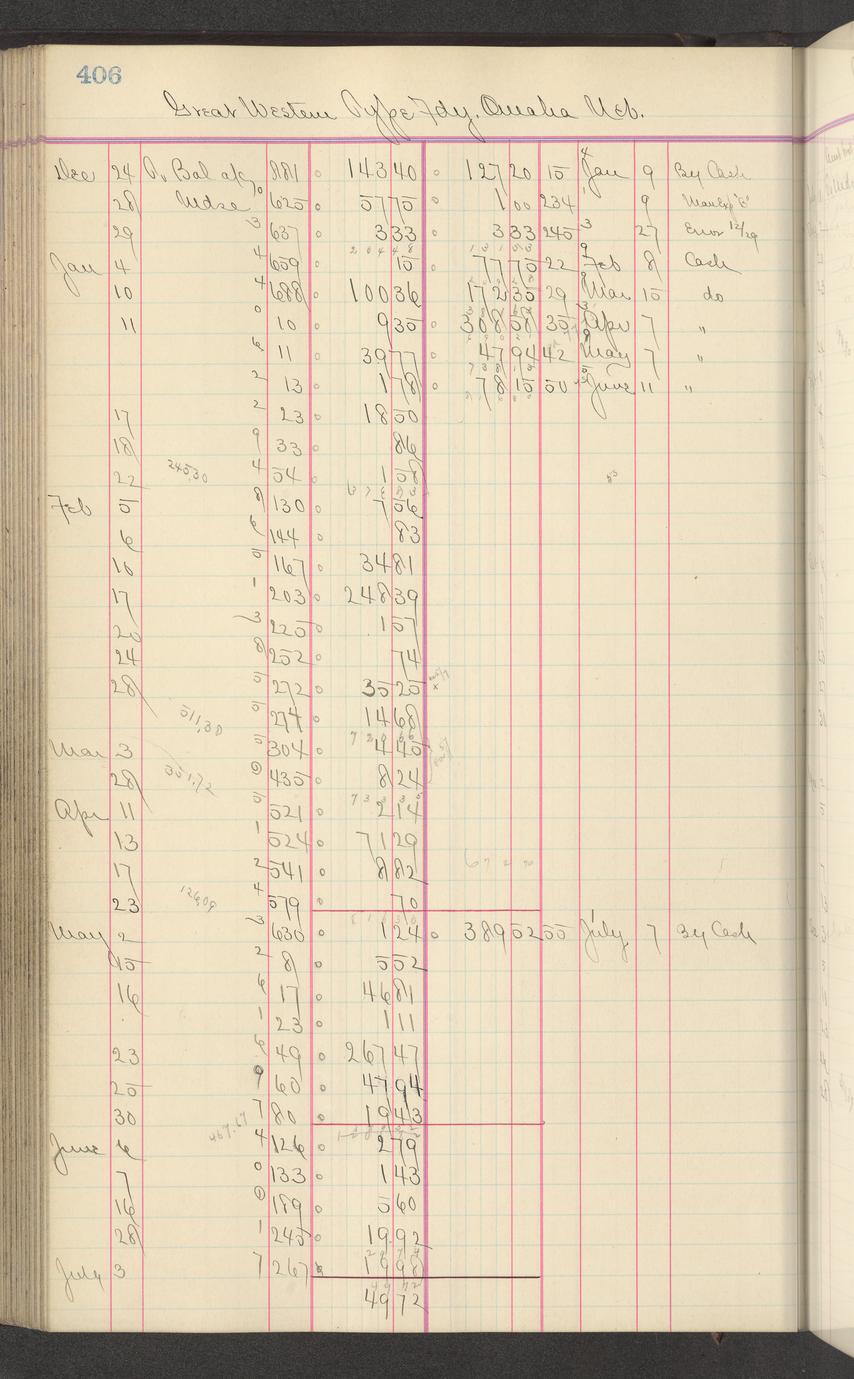 406
Great Western Type Fdy. Omaha Neb.
Dec 24 Bal 881 143 40 127 20 15 Jan 9 By Cash
28 Mdse 0 625 57 75 1 00 234 9
29 3 637 3 33 3 33 245 27 Error 12/29
Jan 4 4 659 15 77 75 22 Feb 8 Cash
10 4 688 100 36 172 35 29 Mar 15 do
11 0 10 9 35 308 58 35 Apr 7 "
6 11 39 77 47 94 42 May 7 "
2 13 1 78 78 15 50 June 11 "
17 2 23 18 50
18 9 33 86
22 245.30 4 54 1 58
Feb 5 8 130 7 56
6 6 144 83
16 5 167 34 81
17 1 203 248 39
20 3 225 1 57
24 8 252 74
28 5 272 35 25
511.30 5 274 14 68
Mar 3 5 304 4 45
28 351.72 0 435 8 24
Apr 11 5 521 2 14
13 1 524 71 29
17 2 541 8 82
23 126.09 4 579 70
May 2 3 630 1 24 389 52 55 July 7 By Cash
15 2 8 5 52
16 6 17 46 81
1 23 1 11
23 6 49 267 47
25 9 60 47 94
30 7 80 19 43
June 6 467.67 4 126 2 79
7 0 133 1 43
16 0 189 5 60
28 1 245 19 92
July 3 7 267 19 98
49 72